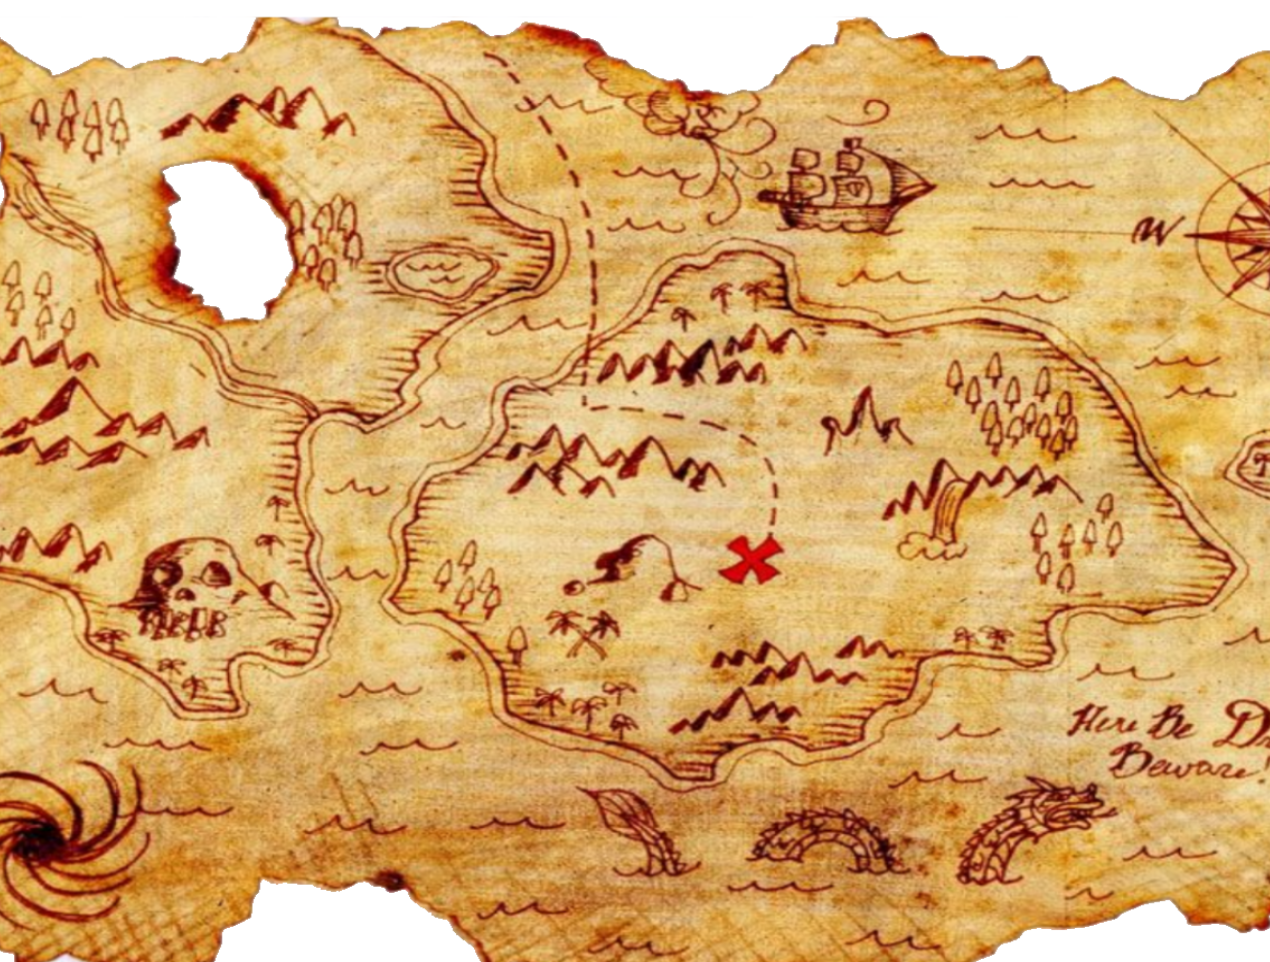 W
Here Be
Beware!